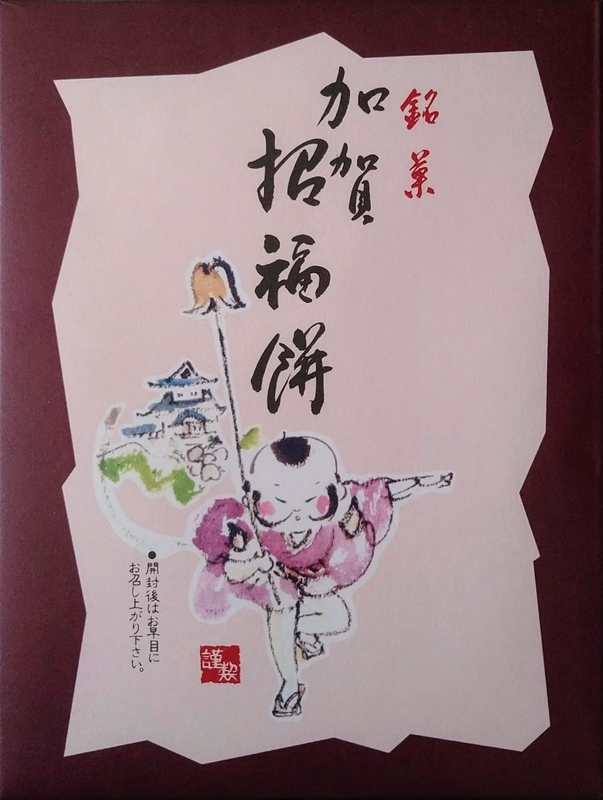 銘菓
加賀
招福餅
●開封後はお早目に
お召し上がり下さい。
謹製